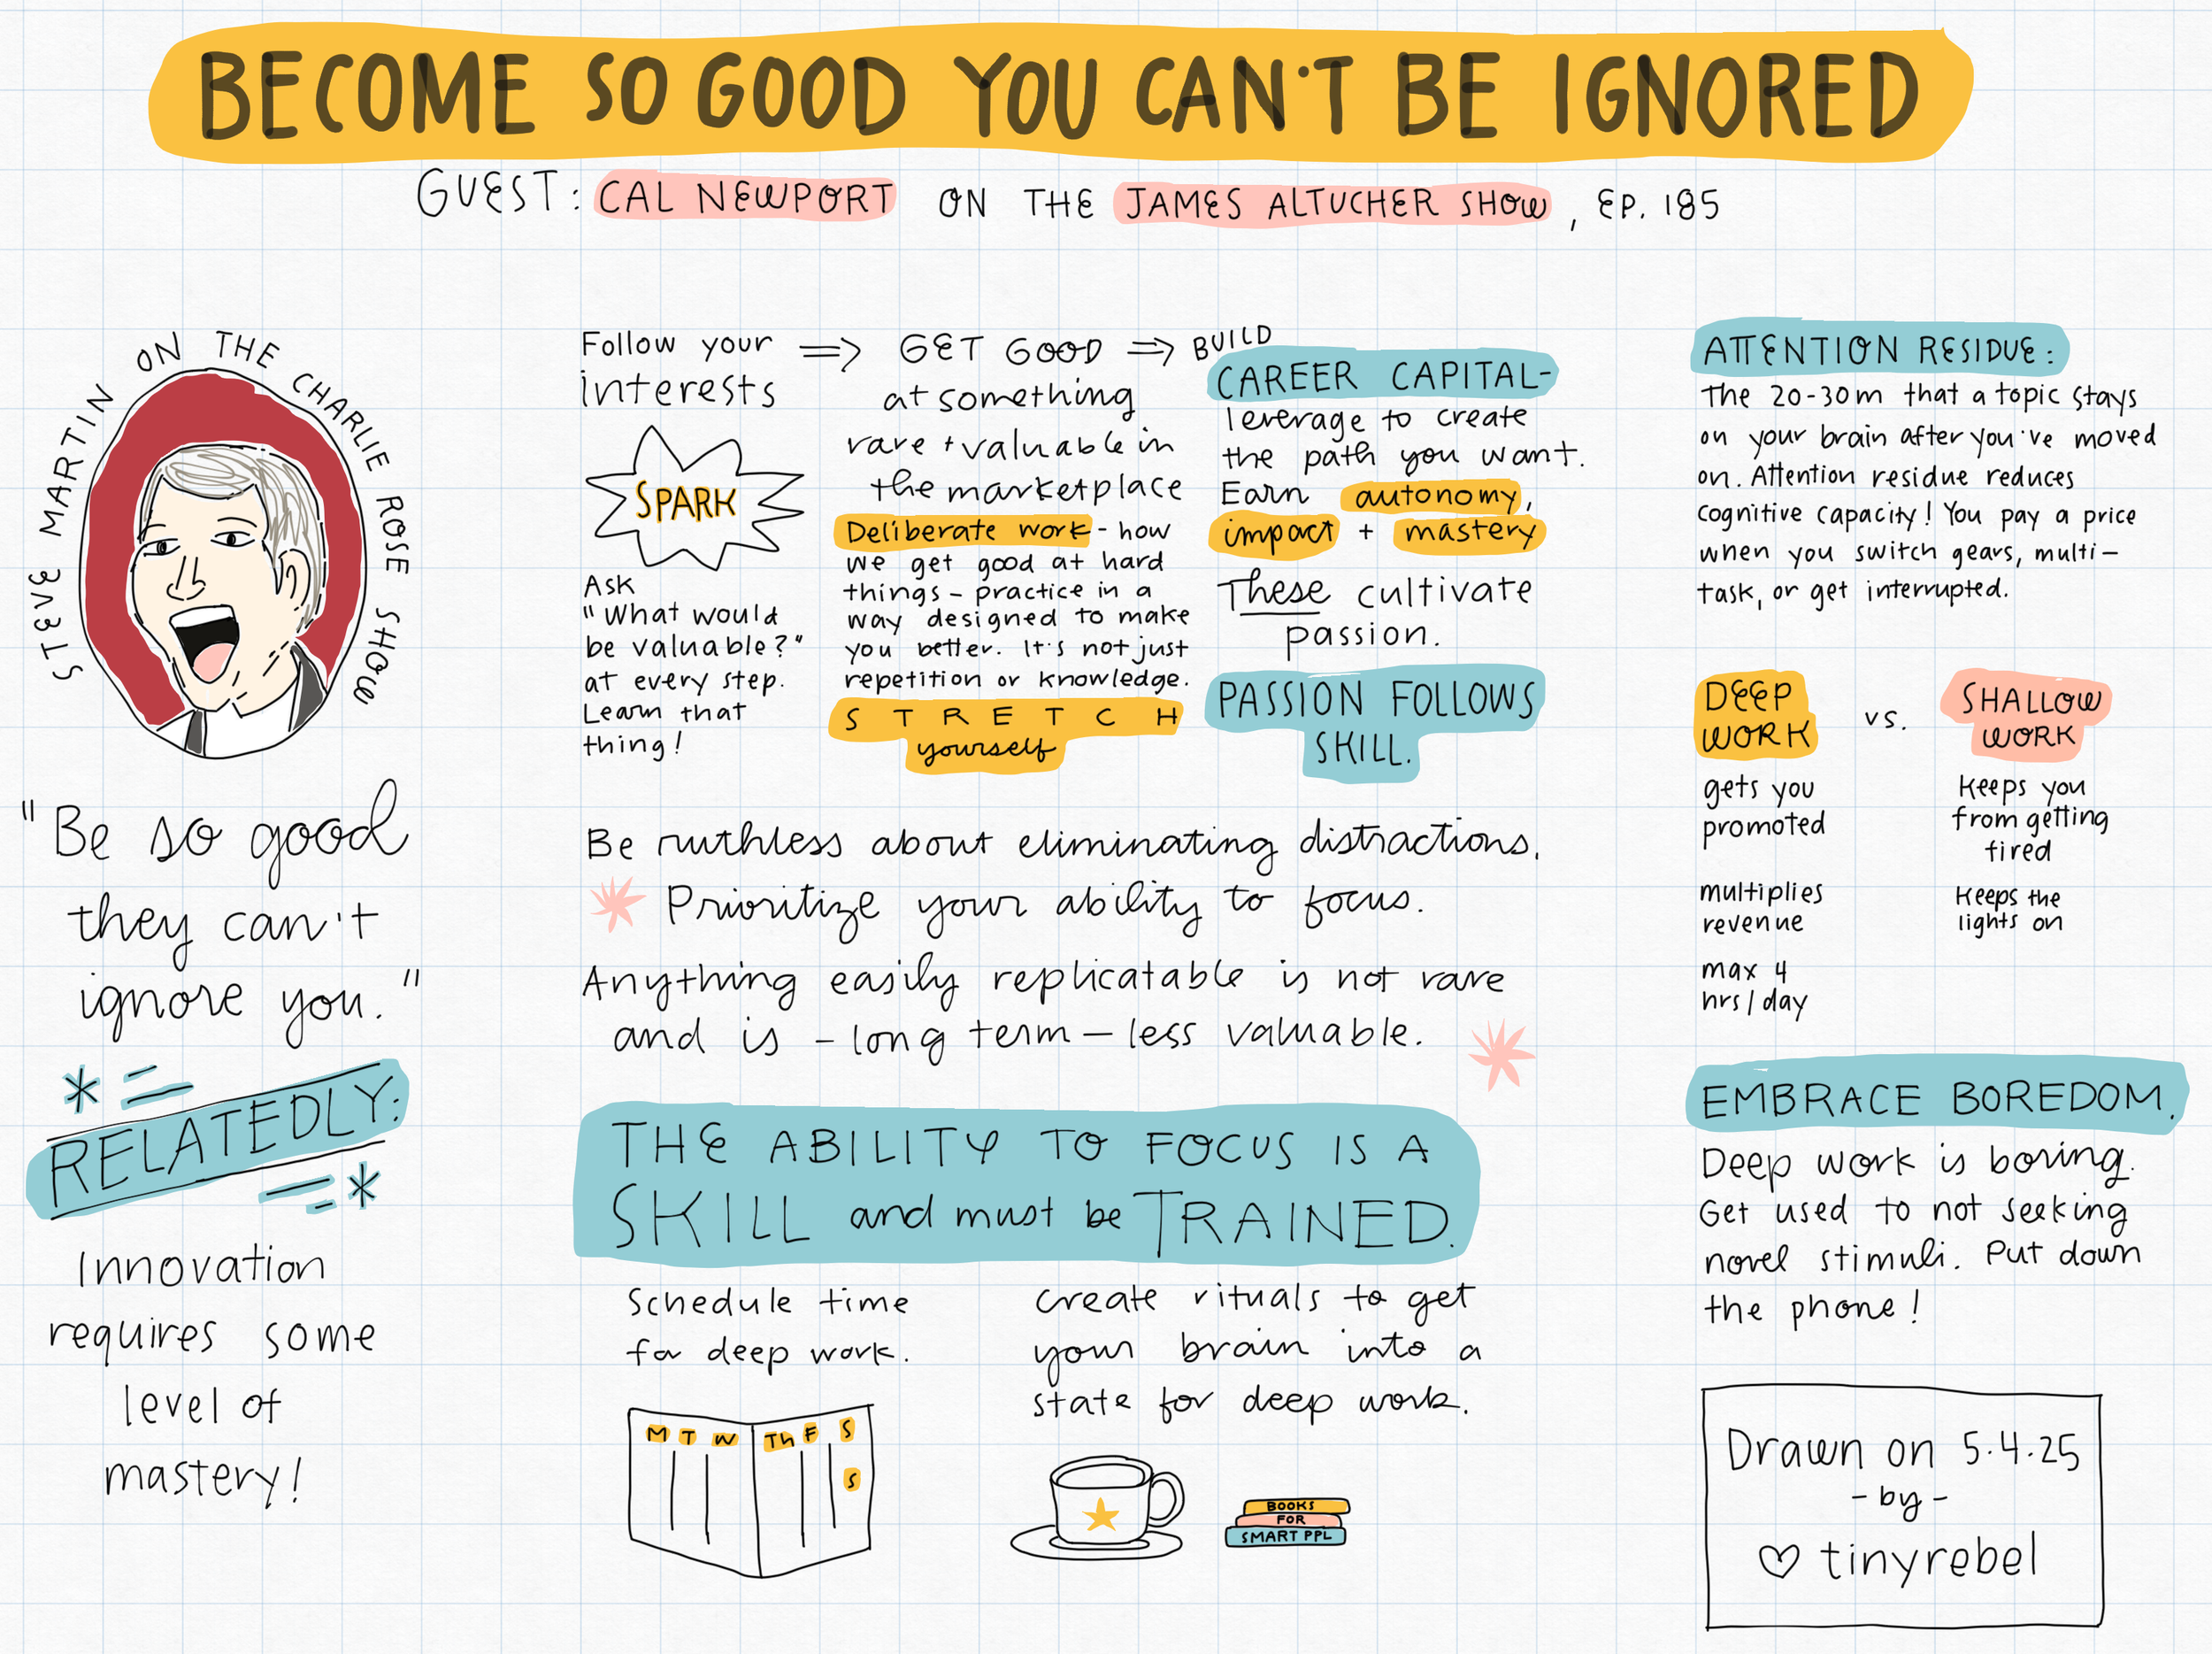 BECOME SO GOOD YOU CAN'T BE IGNORED
GUEST: CAL NEWPORT ON THE JAMES ALTUCHER SHOW, EP. 185
STEVE MARTIN ON THE CHARLIE ROSE SHOW
"Be so good
they can't
ignore you."
RELATEDLY:
Innovation
requires some
level of
mastery!
Follow your
interests
SPARK
Ask
"What would
be valuable?"
at every step.
Learn that
thing!
GET GOOD
at something
rare + valuable in
the marketplace
Deliberate work - how
we get good at hard
things - practice in a
way designed to make
you better. It's not just
repetition or knowledge.
STRETCH
yourself
BUILD
CAREER CAPITAL-
leverage to create
the path you want.
Earn autonomy,
impact + mastery
These cultivate
passion.
PASSION FOLLOWS
SKILL.
Be ruthless about eliminating distractions.
Prioritize your ability to focus.
Anything easily replicatable is not rare
and is - long term - less valuable.
THE ABILITY TO FOCUS IS A
SKILL and must be TRAINED.
Schedule time
for deep work.
M T W Th F S
S
Create rituals to get
your brain into a
state for deep work.
BOOKS
FOR
SMART PPL
ATTENTION RESIDUE:
The 20-30m that a topic stays
on your brain after you've moved
on. Attention residue reduces
cognitive capacity! You pay a price
when you switch gears, multi-
task, or get interrupted.
DEEP
WORK
vs.
SHALLOW
WORK
gets you
promoted
multiplies
revenue
max 4
hrs/day
Keeps you
from getting
fired
Keeps the
lights on
EMBRACE BOREDOM.
Deep work is boring.
Get used to not seeking
novel stimuli. Put down
the phone!
Drawn on 5.4.25
- by -
♡ tinyrebel